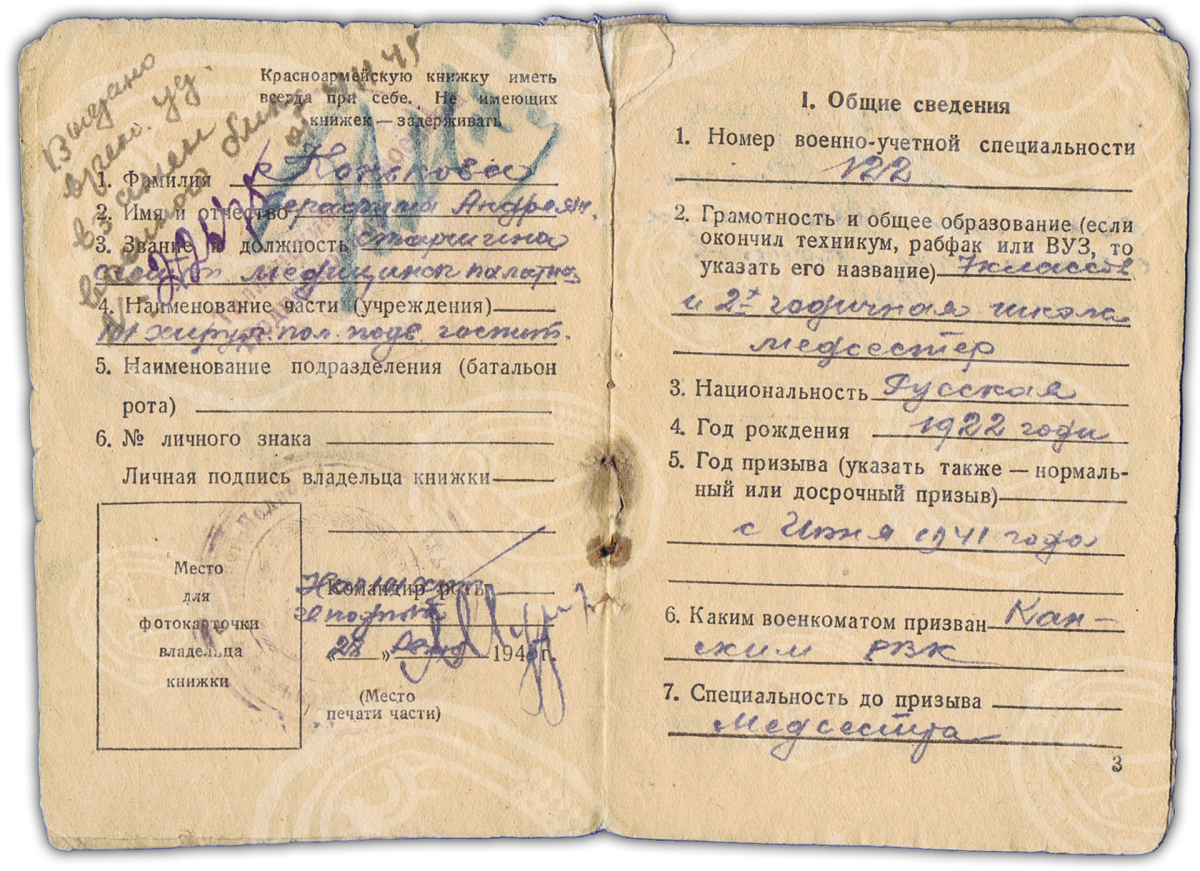 Выдано
врем. уд.
взамен
военного бил.
Красноармейскую книжку иметь
всегда при себе. Не имеющих
книжек — задерживать
1. Фамилия Конькова
2. Имя и отчество Серафима Андреян.
3. Звание и должность старшина
медицинск палатна
4. Наименование части (учреждения)
хирург. пол. подв. госпит.
5. Наименование подразделения (батальон
рота)
6. № личного знака
Личная подпись владельца книжки
Место
для
фотокарточки
владельца
книжки
Командир роты
« » 194 г.
(Место
печати части)
I. Общие сведения
1. Номер военно-учетной специальности
2. Грамотность и общее образование (если
окончил техникум, рабфак или ВУЗ, то
указать его название) 7 классов
и 2х годичная школа
медсестер
3. Национальность Русская
4. Год рождения 1922 года
5. Год призыва (указать также — нормаль-
ный или досрочный призыв)
с Июня 1941 года
6. Каким военкоматом призван Кан-
ским РВК
7. Специальность до призыва
Медсестра
3